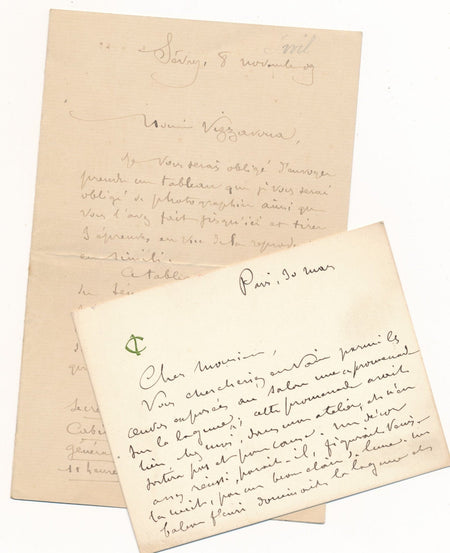 Sèvres, 8 novembre 09
Monsieur Vizzavona,
Je vous serais obligé d'envoyer
prendre un tableau que je vous serai
obligé de photographier ainsi que
vous l'avez fait jusqu'ici et tirer
3 épreuves en vue de la reprod
en simili.
Ce table
générale
11 heure
Paris, 30 mars
Cher Monsieur,
Vous chercheriez en vain parmi les
œuvres exposées au salon une « promenade
sur la lagune » ; cette promenade avait
lieu chez moi, dans mon atelier, et n'en
sortira pas et pour cause. Un décor
assez réussi, paraît-il, figurait Venise
la nuit, par un beau clair de lune. Un
balcon fleuri dominait la lagune et